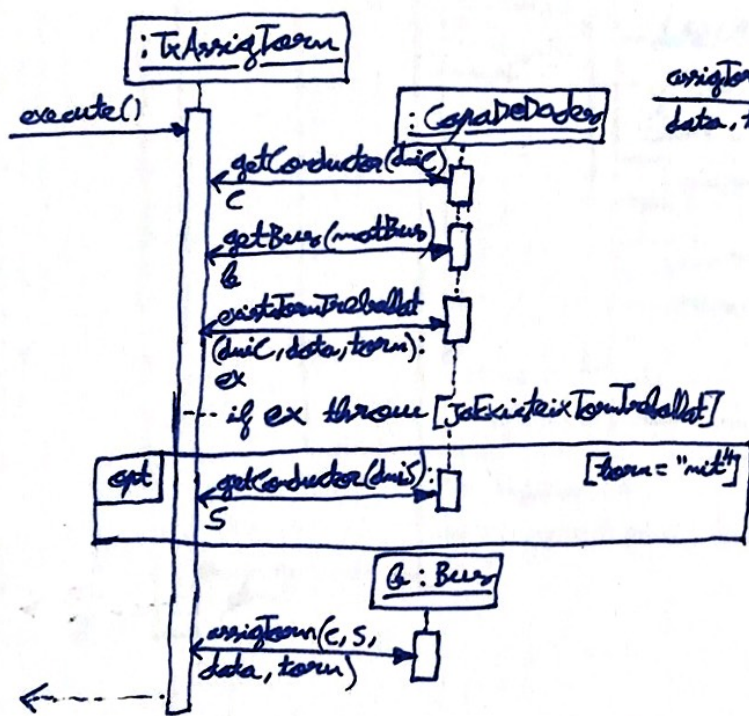 :TxAssigTorn
execute()
:CapaDeDades
assigTor
data, t
getConductor(dniC)
C
getBus(matBus)
b
existTornTreballat
(dniC, data, torn):
ex
if ex throw [JaExisteixTornTreballat]
opt
getConductor(dniS):
[torn = "nit"]
S
b : Bus
assigTorn(c, s,
data, torn)